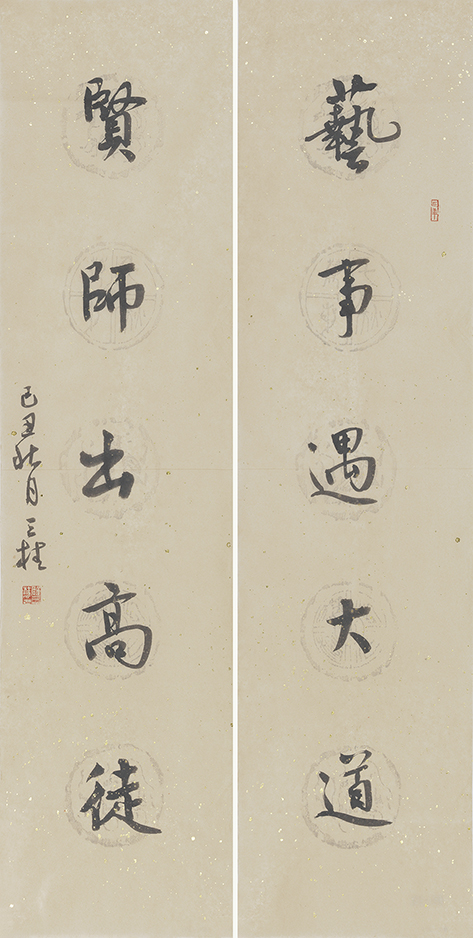 藝事遇大道
賢師出高徒
己丑秋月三桂